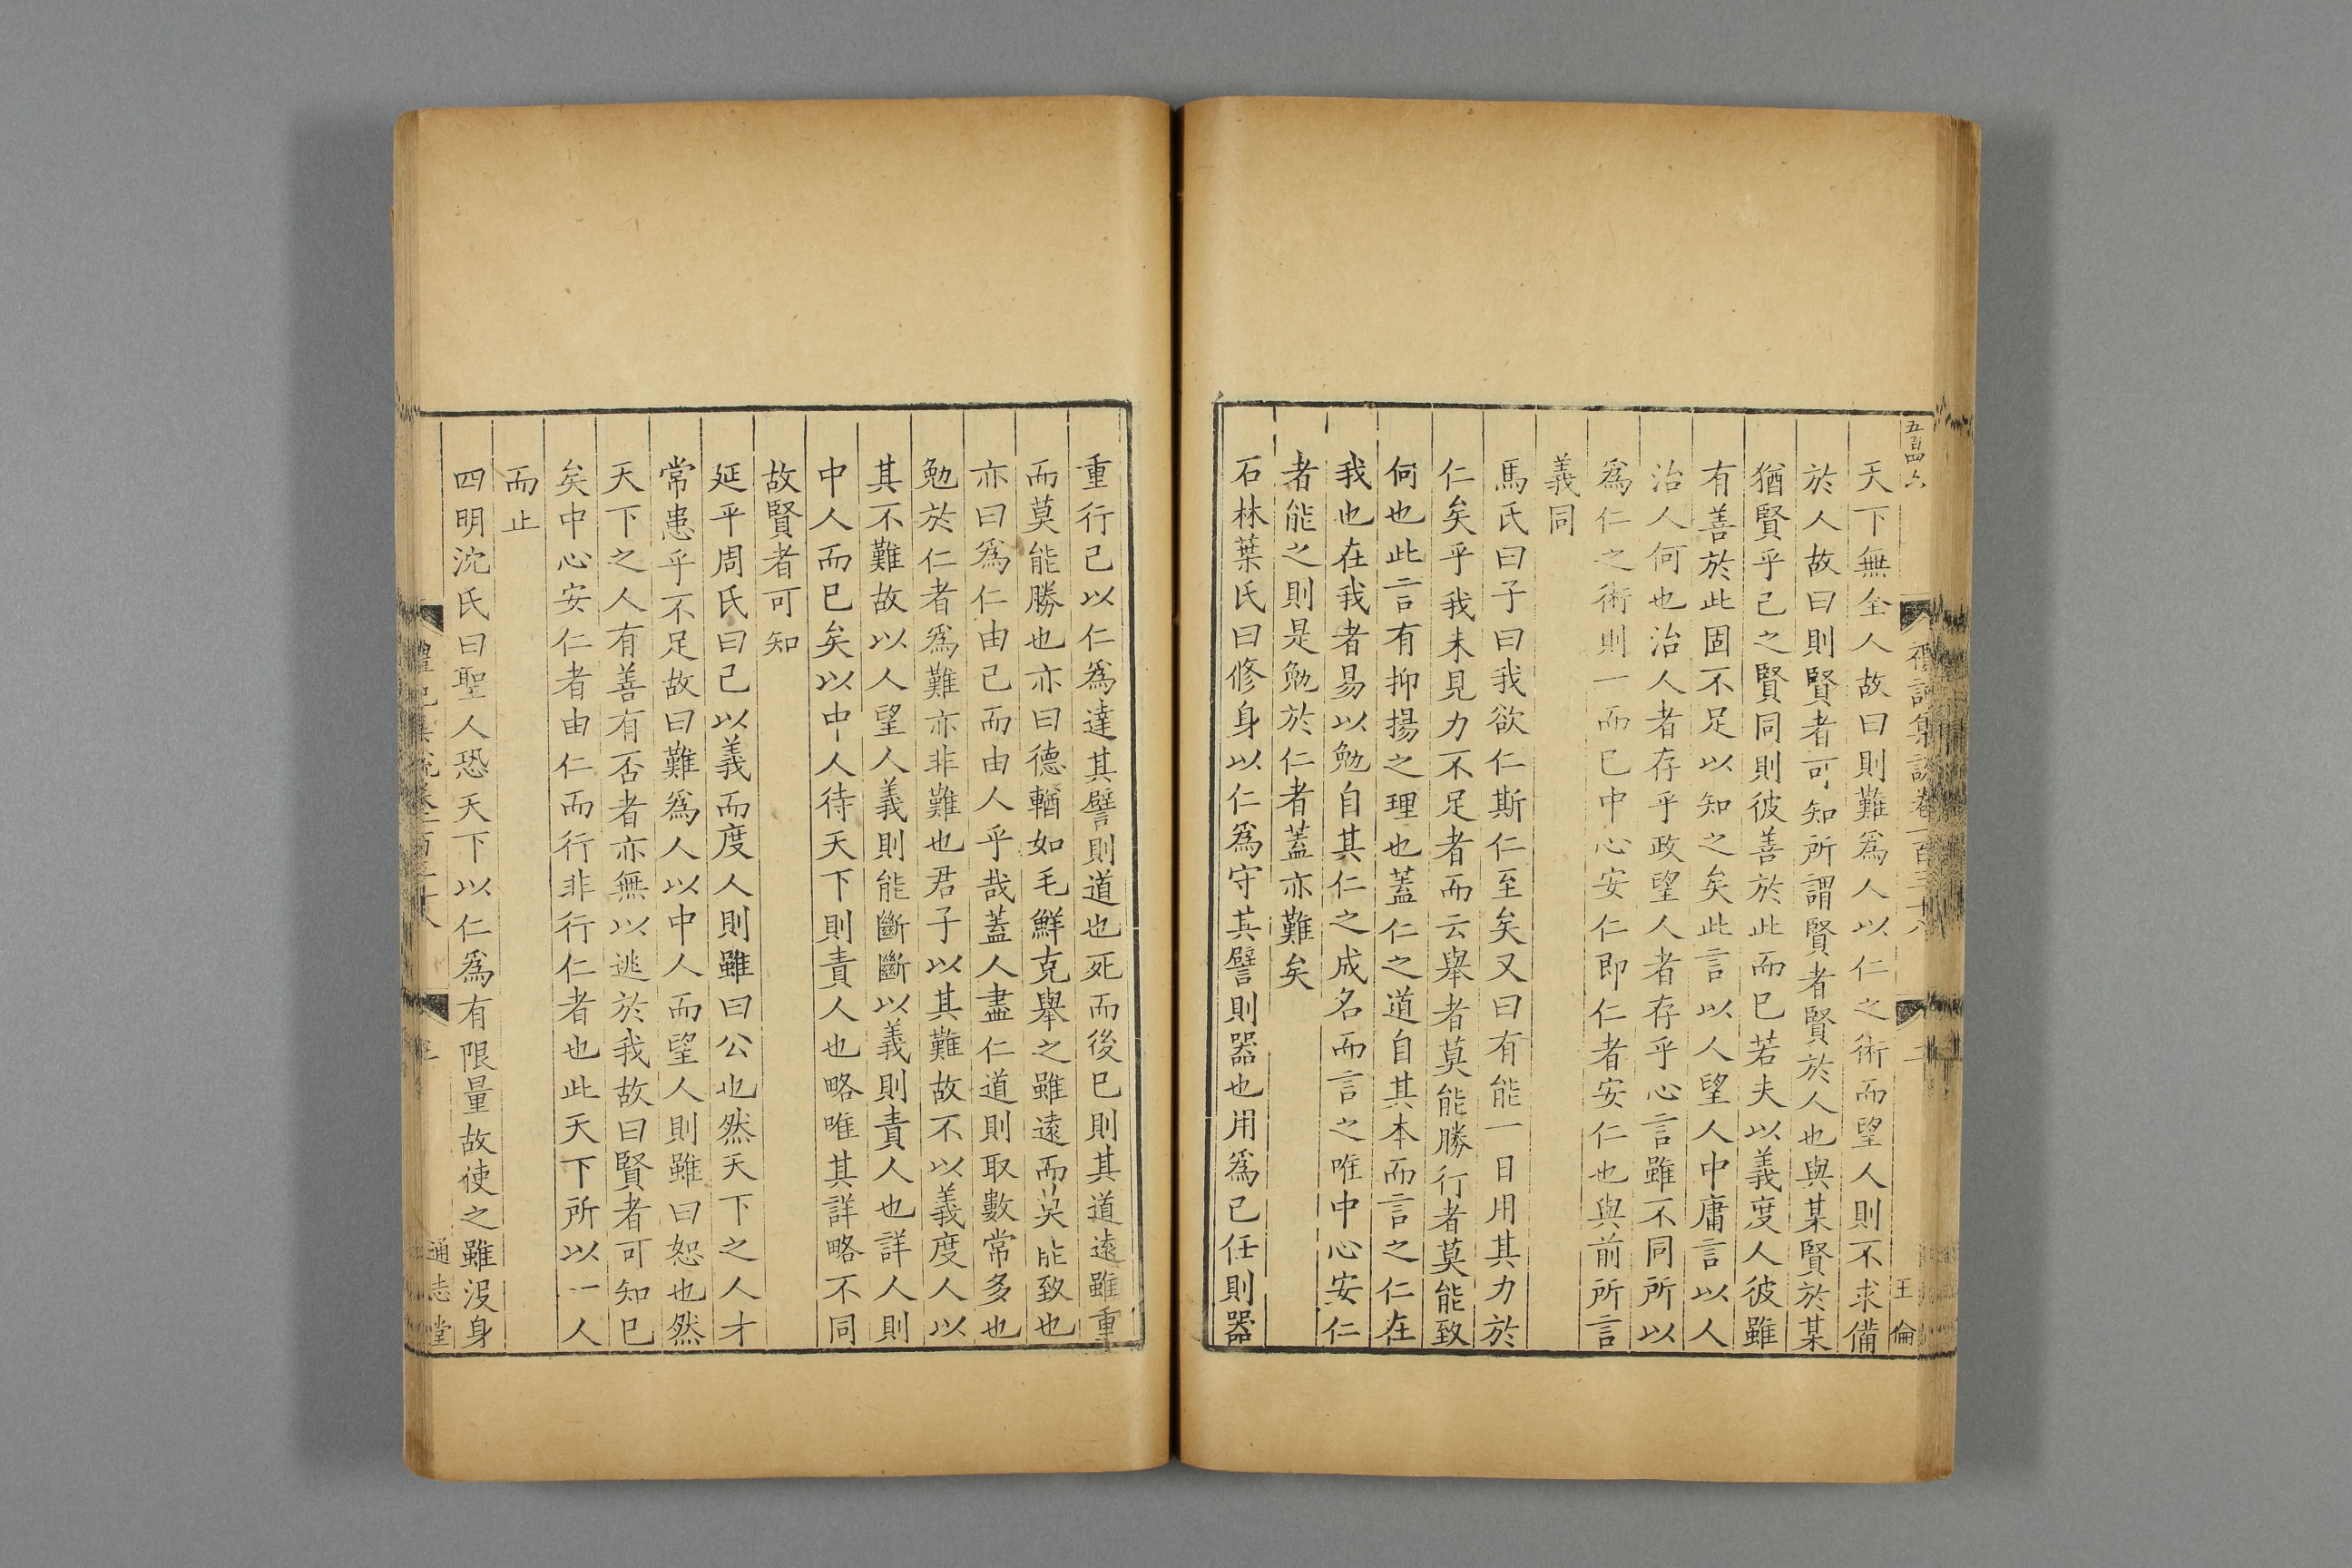 五百四六
禮記集說卷一百三十八
二
王倫
天下無全人故曰則難爲人以仁之術而望人則不求備
於人故曰則賢者可知所謂賢者賢於人也與某賢於某
猶賢乎己之賢同則彼善於此而已若夫以義度人彼雖
有善於此固不足以知之矣此言以人望人中庸言以人
治人何也治人者存乎政望人者存乎心言雖不同所以
爲仁之術則一而已中心安仁即仁者安仁也與前所言
義同
馬氏曰子曰我欲仁斯仁至矣又曰有能一日用其力於
仁矣乎我未見力不足者而云舉者莫能勝行者莫能致
何也此言有抑揚之理也蓋仁之道自其本而言之仁在
我也在我者易以勉自其仁之成名而言之唯中心安仁
者能之則是勉於仁者蓋亦難矣
石林葉氏曰修身以仁爲守其譬則器也用爲已任則器
重行己以仁爲達其譬則道也死而後已則其道遠雖重
而莫能勝也亦曰德輶如毛鮮克舉之雖遠而莫能致也
亦曰爲仁由己而由人乎哉蓋人盡仁道則取數常多也
勉於仁者爲難亦非難也君子以其難故不以義度人以
其不難故以人望人義則能斷斷以義則責人也詳人則
中人而已矣以中人待天下則責人也略唯其詳略不同
故賢者可知
延平周氏曰己以義而度人則雖曰公也然天下之人才
常患乎不足故曰難爲人以中人而望人則雖曰恕也然
天下之人有善有否者亦無以逃於我故曰賢者可知已
矣中心安仁者由仁而行非行仁者也此天下所以一人
而止
四明沈氏曰聖人恐天下以仁爲有限量故使之雖沒身
通志堂